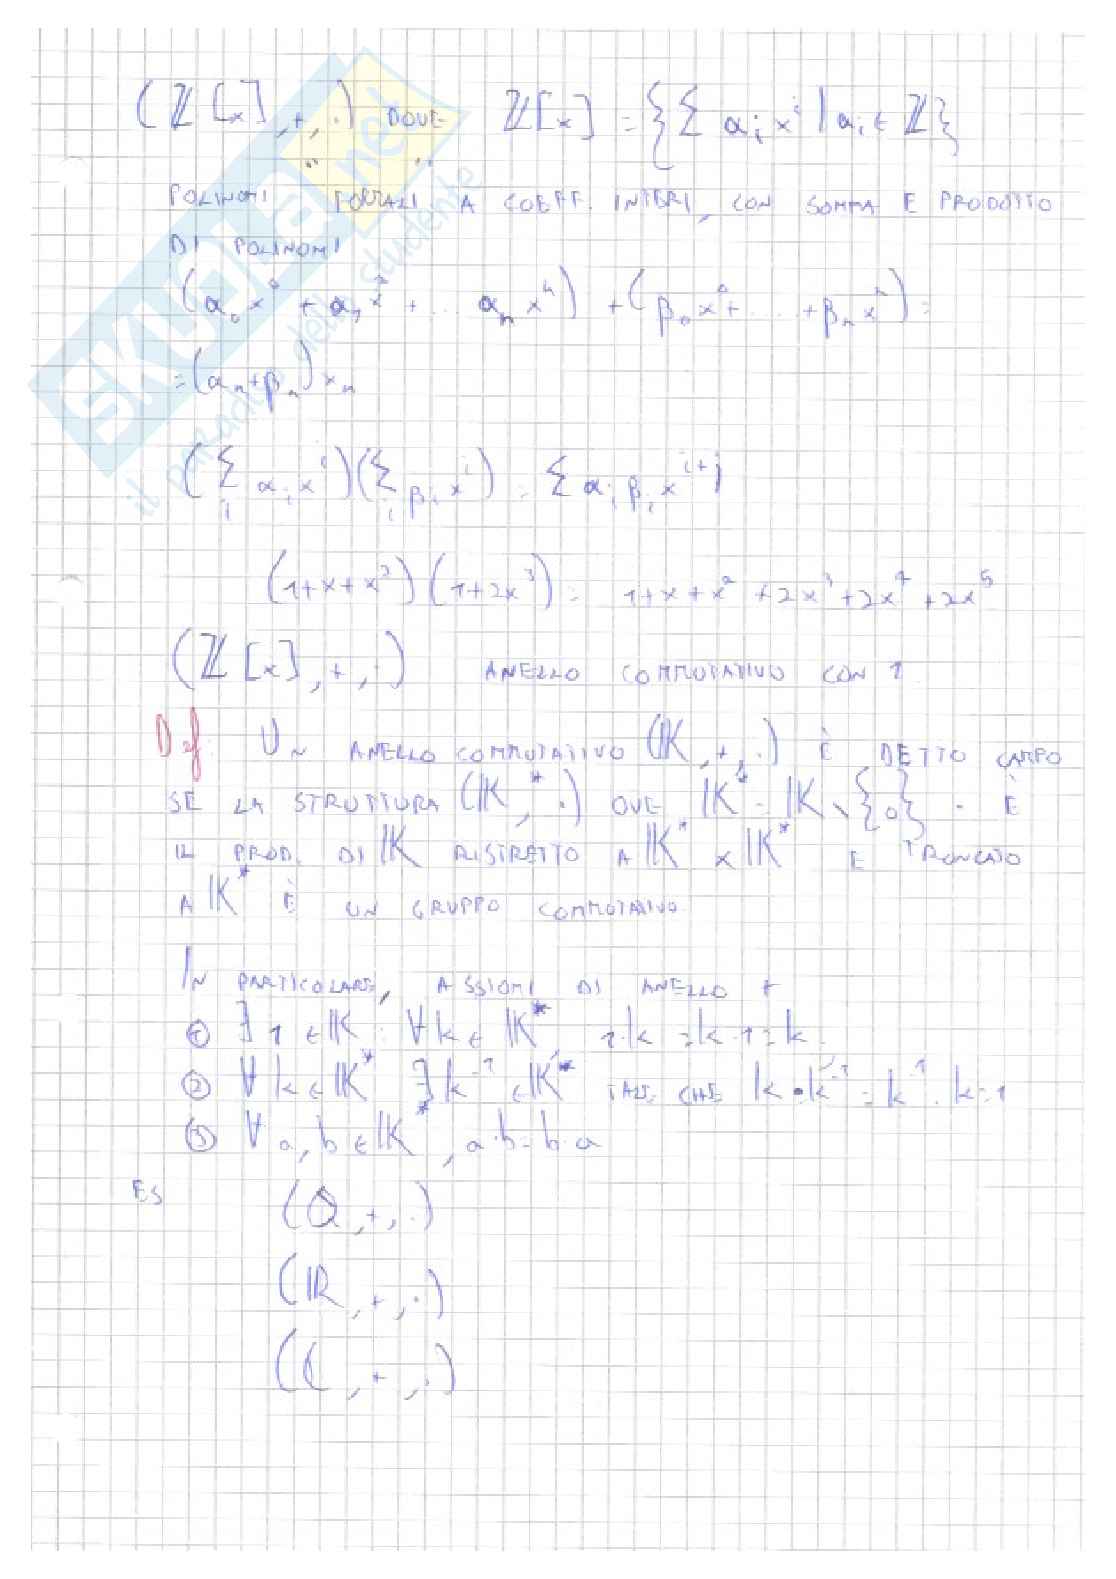 (ℤ[x], +, ·) DOVE ℤ[x] = {Σ α_i x^i | α_i ∈ ℤ}
POLINOMI "FORMALI" A COEFF. INTERI, CON SOMMA E PRODOTTO
DI POLINOMI
(α_0 x^0 + α_1 x^1 + ... α_n x^n) + (β_0 x^0 + ... + β_n x^n) =
= (α_n + β_n) x_n
(Σ_i α_i x^i)(Σ_i β_i x^i) = Σ α_i β_i x^{i+j}
(1+x+x^2)(1+2x^3) = 1+x+x^2+2x^3+2x^4+2x^5
(ℤ[x], +, ·) ANELLO COMMUTATIVO CON 1
Def: UN ANELLO COMMUTATIVO (𝕂, +, ·) È DETTO CAMPO
SE LA STRUTTURA (𝕂*, ·) OVE 𝕂* = 𝕂 \ {0} · È
IL PROD. DI 𝕂 RISTRETTO A 𝕂* × 𝕂* E TRONCATO
A 𝕂* È UN GRUPPO COMMUTATIVO
IN PARTICOLARE, ASSIOMI DI ANELLO +
① ∃ 1 ∈ 𝕂 : ∀ k ∈ 𝕂*, 1·k = k·1 = k
② ∀ k ∈ 𝕂* ∃ k^{-1} ∈ 𝕂* TALE CHE k·k^{-1} = k^{-1}·k = 1
③ ∀ a, b ∈ 𝕂*, a·b = b·a
ES (ℚ, +, ·)
(ℝ, +, ·)
(ℂ, +, ·)
SKUOLA.net
il paradiso dello studente